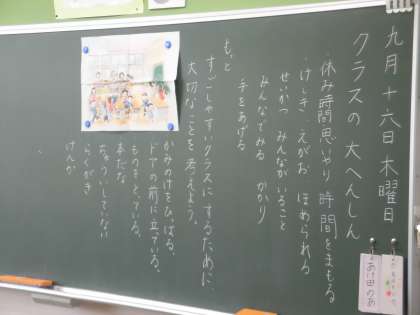 九月十六日木曜日
クラスの大へんしん
・休み時間思いやり 時間をまもる
・けしき えがお ほめられる
せいかつ みんながいること
みんなでみる かかり
手をあげる
もっと
すごしやすいクラスにするために、
大切なことを考えよう。
かみのけをひっぱる、
ドアの前に立っている、
ものをとっている、
本だな
ちゅういしていない
らくがき
けんか
あけ田のあ